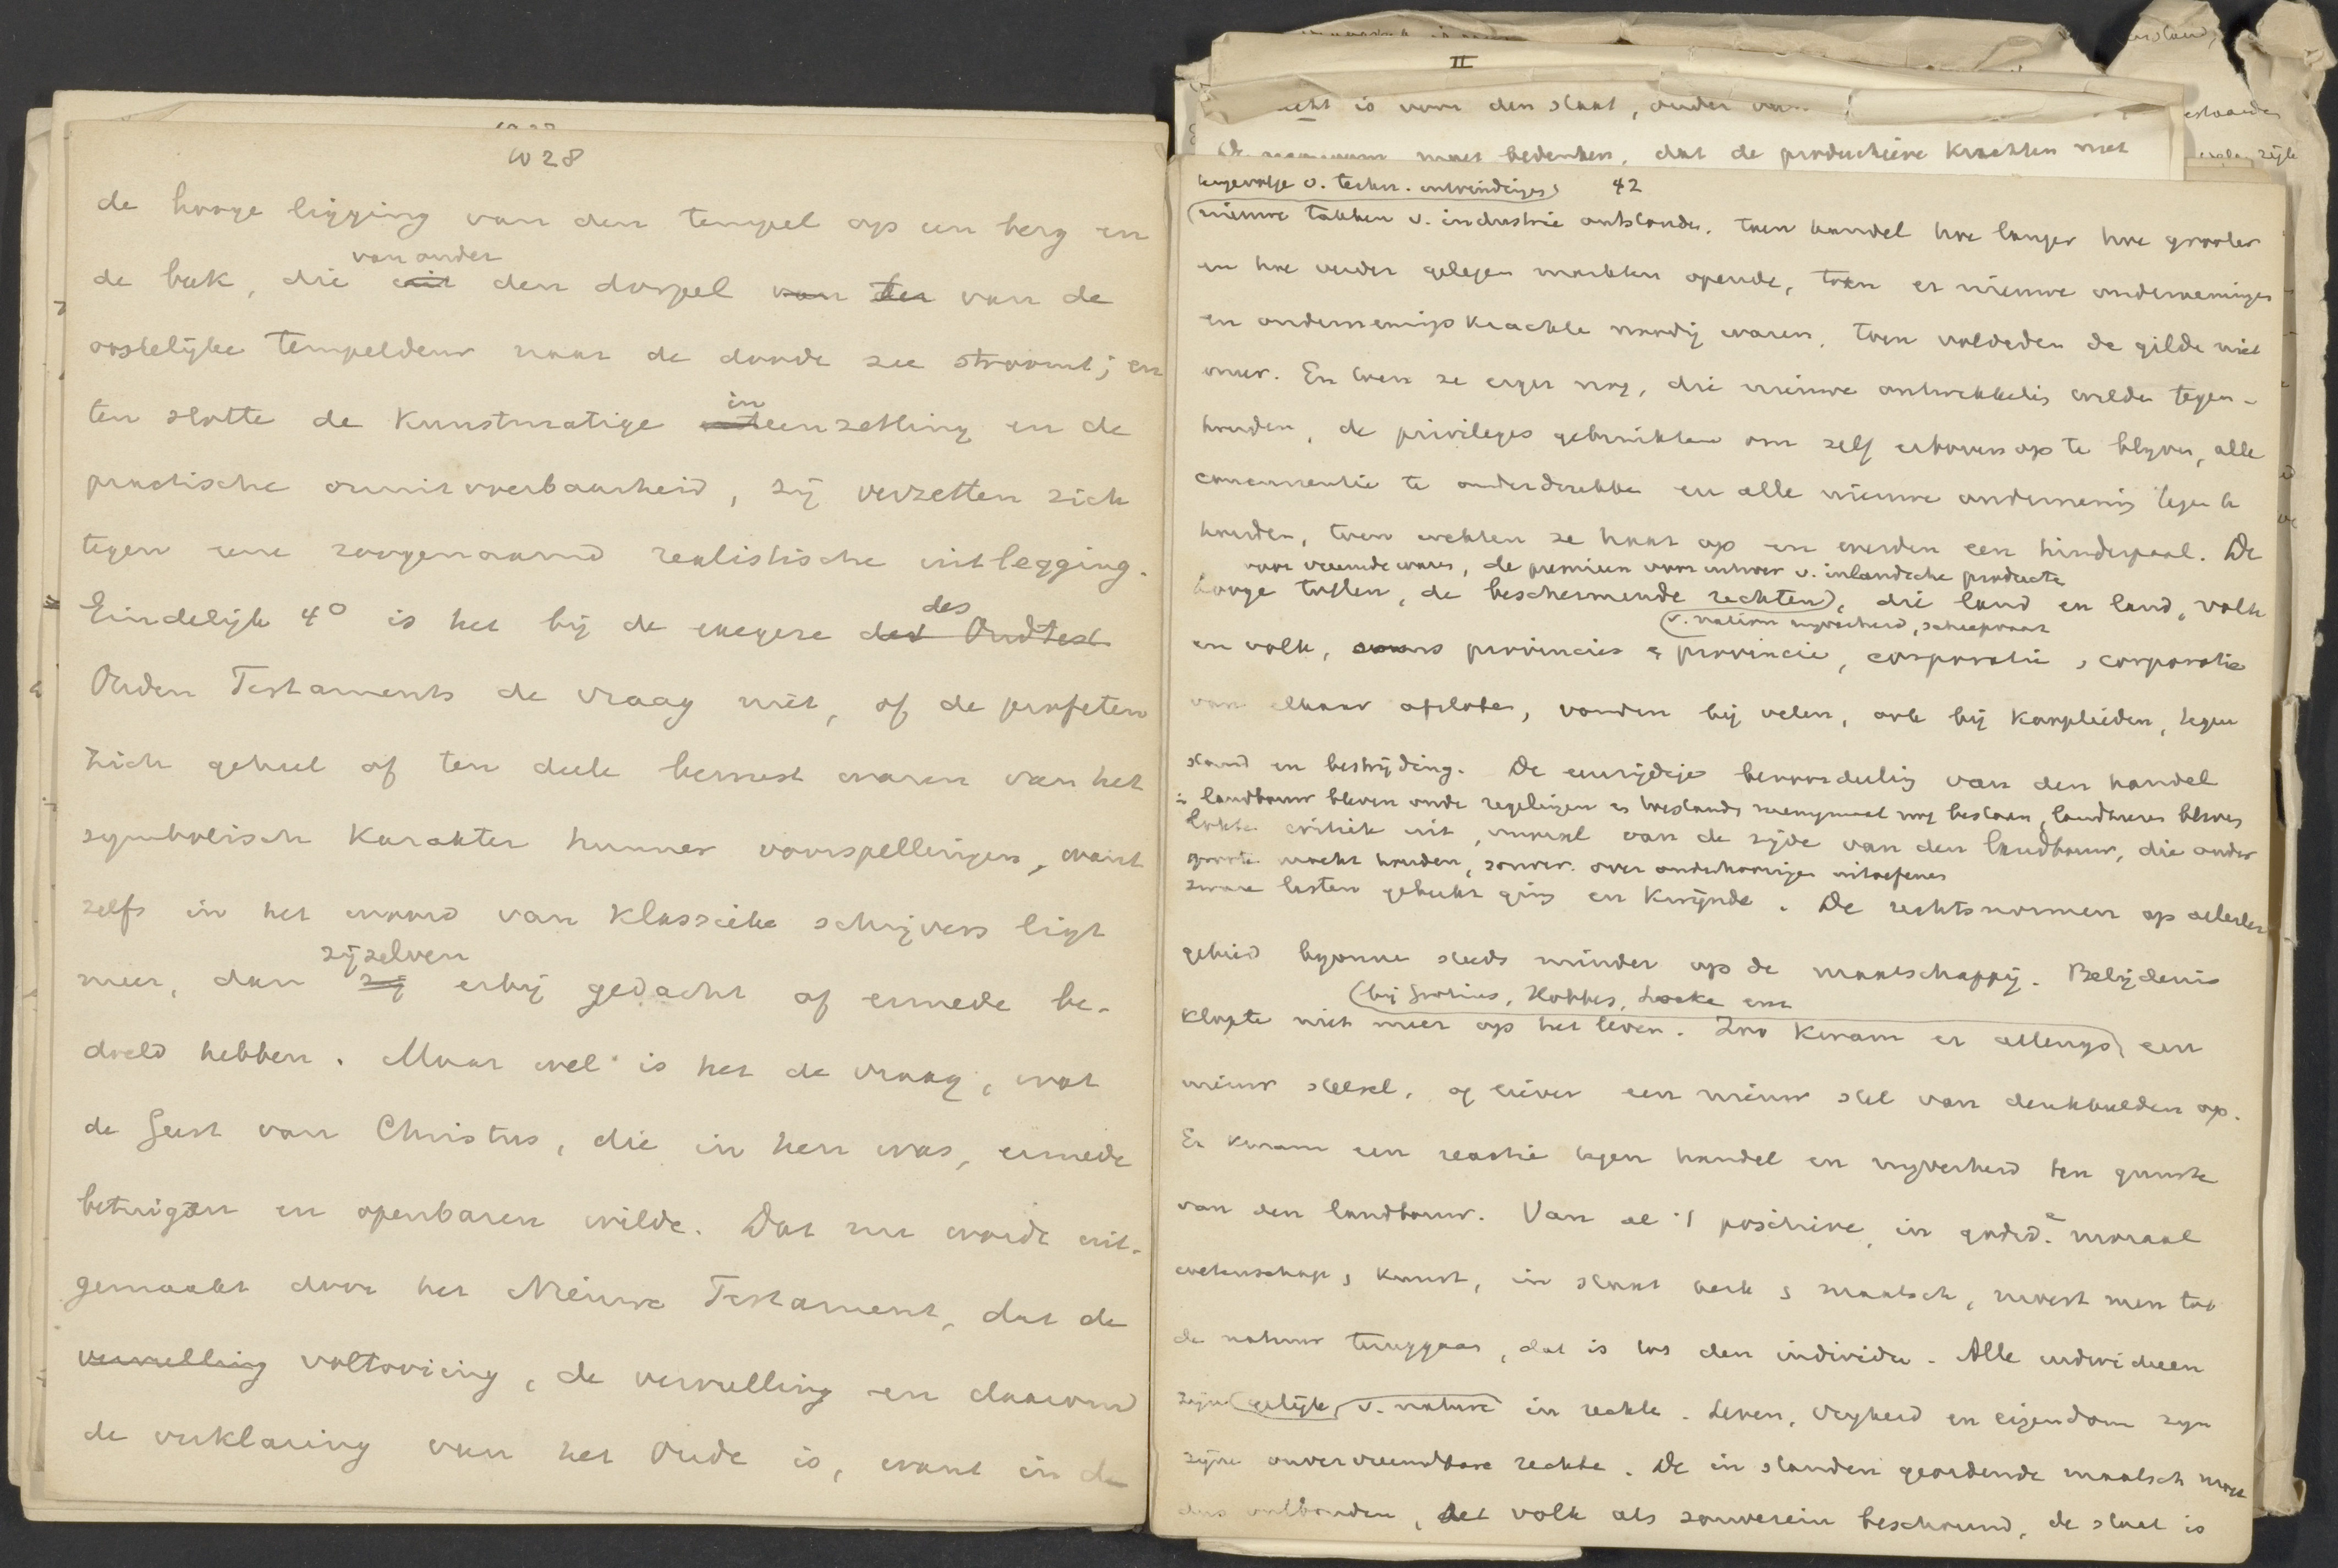 1028
de hooge ligging van den tempel op een berg en
van onder
de beek, die uit den dorpel van der van de
oostelijke tempeldeur naar de doode zee stroomt; en
in
ten slotte de kunstmatige uiteenzetting en de
practische onuitvoerbaarheid, zij verzetten zich
tegen eene zoogenaamd realistische uitlegging.
des
Eindelijk 4° is het bij de exegese des Oudtest
Ouden Testaments de vraag niet, of de profeten
zich geheel of ten deele bewust waren van het
symbolisch karakter hunner voorspellingen, want
zelfs in het woord van klassieke schrijvers ligt
zijzelven
meer, dan zij erbij gedacht of ermede be-
doeld hebben. Maar wel is het de vraag, wat
de Geest van Christus, die in hen was, ermede
betuigen en openbaren wilde. Dat nu wordt uit-
gemaakt door het Nieuwe Testament, dat de
vervulling voltooiing, de vervulling en daarom
de verklaring van het Oude is, want in de
II
is voor den staat, onder
moet bedenken, dat de productieve krachten met
42
tengevolge v. techn. uitvindingen
nieuwe takken v. industrie ontstonden, toen handel hoe langer hoe grooter
en hoe verder gelegen markten opende, toen er nieuwe ondernemingen
en ondernemingskrachten noodig waren, toen voldeden de gilde niet
meer. En toen ze erger nog, die nieuwe ontwikkeling wilde tegen-
houden, de privileges gebruikten om zelf erbovenop te blijven, alle
concurrentie te onderdrukken en alle nieuwe onderneming tegen te
houden, toen wekten ze haat op en werden een hinderpaal. De
voor vreemde waren, de premien voor uitvoer v. inlandsche producten
hooge tollen, de beschermende rechten, die land en land, volk
v. nation nijverheid, scheepvaart
en volk, provincies en provincie, corporatie en corporatie
van elkaar afsloten, vonden bij velen, ook bij kooplieden, tegen
stand en bestrijding. De eenzijdige bevoordeeling van den handel
in landbouw bleven oude regelingen en toestanden menigmaal nog bestaan, landheeren bleven
lokte critiek uit, vooral van de zijde van den landbouw, die onder
groote macht houden, souver. over onderhoorigen uitoefenen
zware lasten gebukt ging en kwijnde. De rechtsnormen op allerlei
gebied begonnen steeds minder op de maatschappij. Belijdenis
(bij Grotius, Hobbes, Locke enz
klopte niet meer op het leven. Zoo kwam er allengs een
nieuw stelsel, of liever een nieuw stel van denkbeelden op.
Er kwam een reactie tegen handel en nijverheid ten gunste
van den landbouw. Van al 't positieve, in godsd. moraal
wetenschap en kunst, in staat kerk en maatsch, moest men tot
de natuur teruggaan, dat is tot den individu. Alle individuen
zijn gelijk, v. nature in rechte. Leven, vrijheid en eigendom zijn
zijne onvervreemdbare rechten. De in standen geordende maatsch moet
dus ontbonden, het volk als souverein beschouwd, de staat is